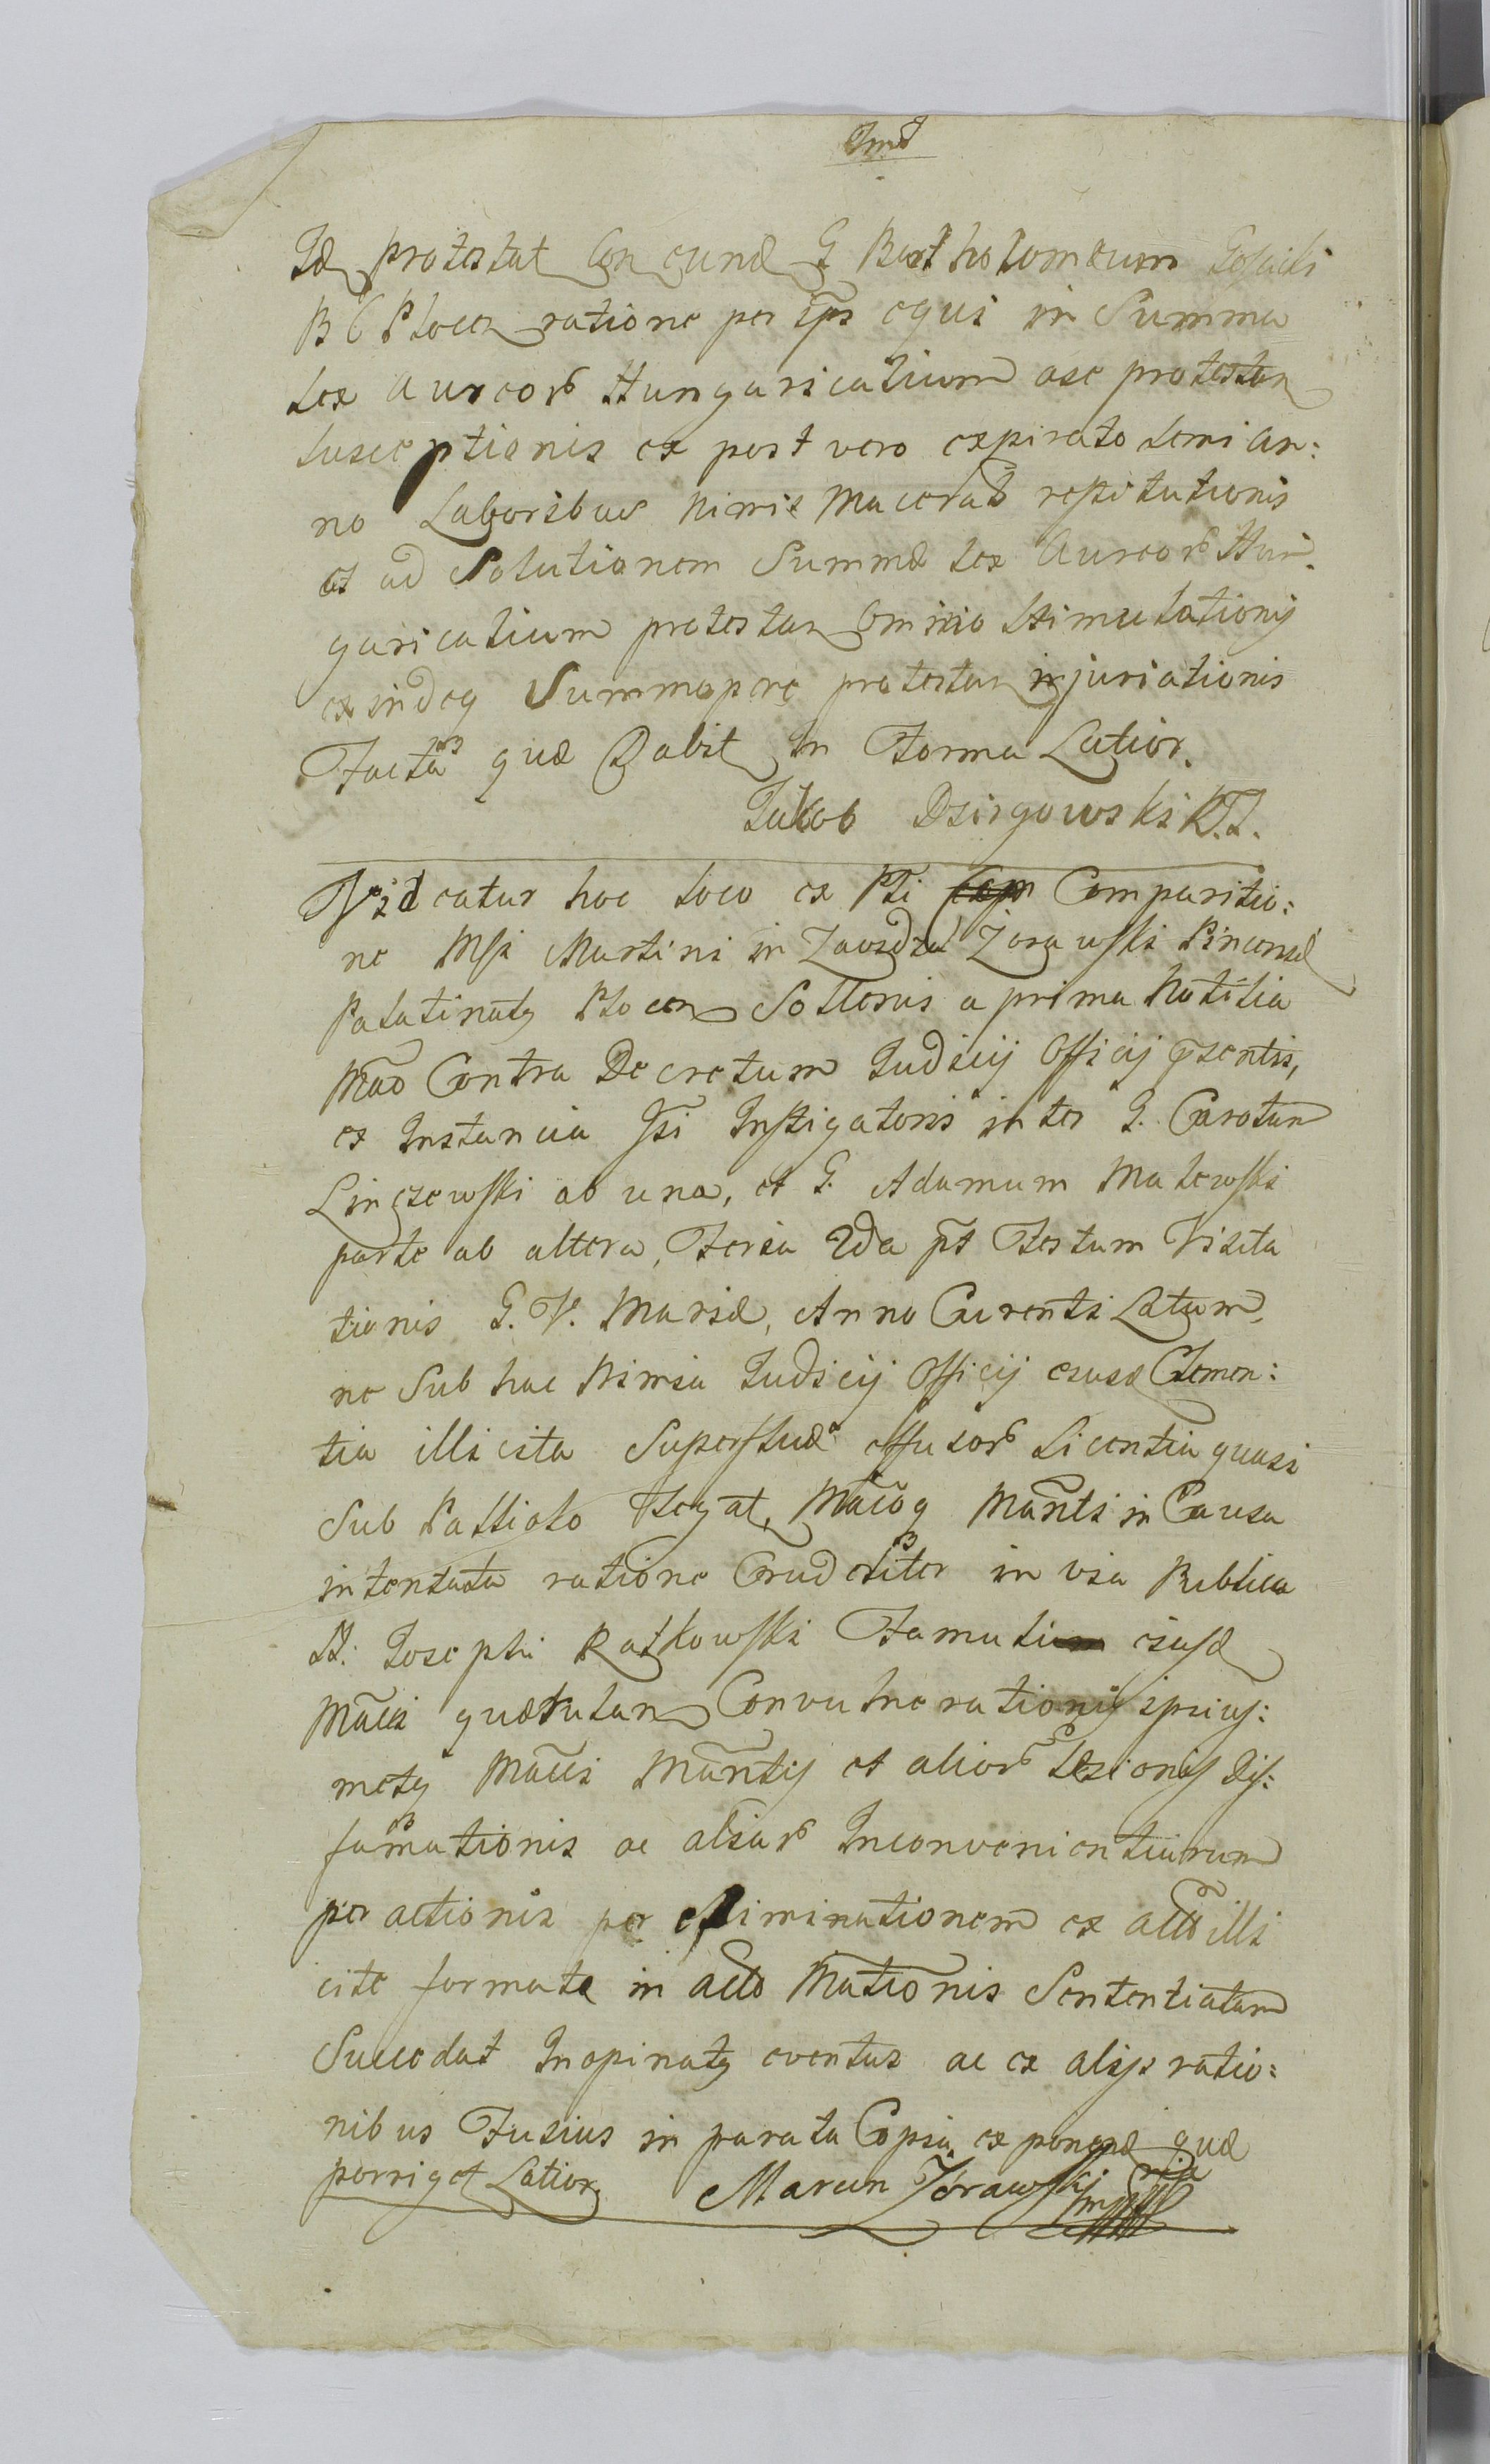 Id protestat Con eund G Bartholomeum Gosicki
B C Plocen ratione per ips equi in Summa
sex aureor Hungaricalium a se protestan
susceptionis ex post vero expirato semi an:
no Laboribus nimis macerati restitutionis
et ad Solutionem Summæ sex Aureor Hun
garicalium protestan Omnino stimulationis
exindeq Summopere protestan injuriationis
Facta quæ Dabit In Forma Latiori.
Jakob Dzirgowski R.T.
Videatur hoc loco ex Pti Comparitio:
ne Msi Martini in Zawadze Zorawski Pincernæ
Palatinatq Plocen Sollenis a prima Notitia
Mao Contra Decretum Judicij Officij psentis,
ex Instancia Isti Instigatoris inter G. Carolum
Linczewski ab una, et G. Adamum Malewski
parte ab altera, Feria 2da pt Festum Visita
tionis G. V. Mariæ, Anno Currenti Latum,
ne Sub hac Nimia Judicij Officij ejusd Clemen:
tia illicita Superfluæ effusor Licentia quasi
Sub Palliolo Tegat, Macoq Manti in Causa
intentata ratione Crudeliter in via Publica
H: Josephi Ratkowski Famuli ejusd
Macci quærulan Convulnerationis ipsius:
metq Macci Mantis et alior Læsionis Dif:
famationis ac aliar Inconvenientiarum
per actionis per eliminationem ex actto illi
cite formata in actto Mationis Sententiatam
Succedat Inopinatq eventus ac ex alijs ratio:
nibus Fusius in parata Copia exponend quæ
porriget Latior Marcin Zórawski mpp